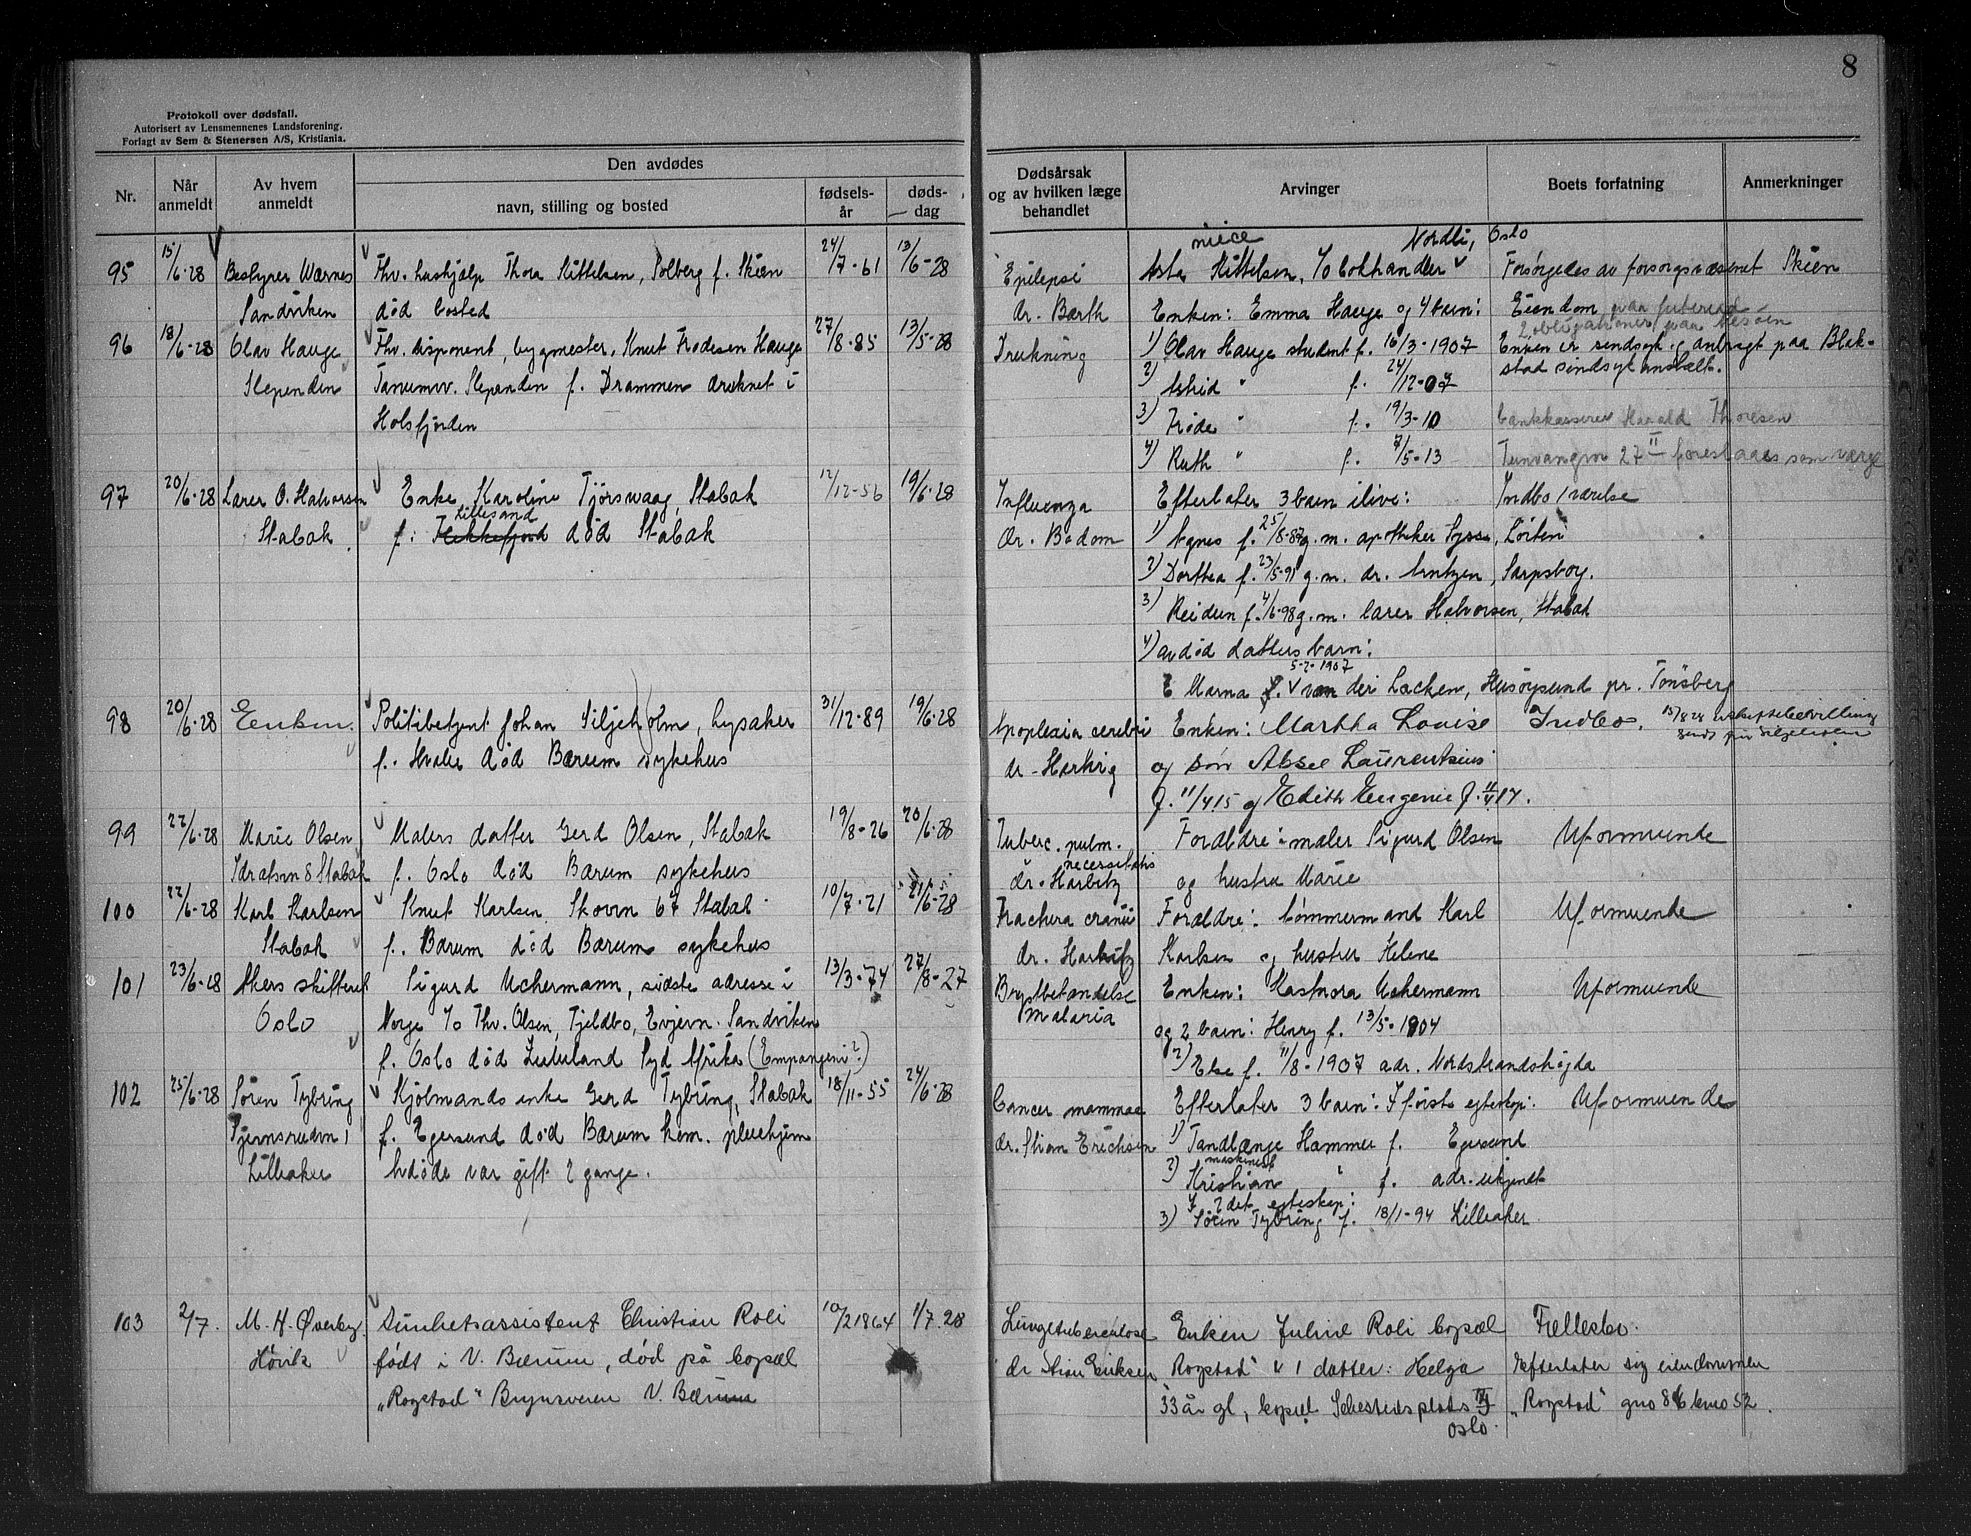 8
Protokoll over dødsfall.
Autorisert av Lensmennenes Landsforening.
Forlagt av Sem & Stenersen A/S, Kristiania.
Nr.
Når anmeldt
Av hvem anmeldt
Den avdødes
navn, stilling og bosted
fødsels-år
døds-dag
Dødsårsak og av hvilken læge behandlet
Arvinger
Boets forfatning
Anmerkninger
95 15/6-28 Bestyrer Wærnes Fhv. hushjælp Thora Kittelsen, Solberg f. Skien 24/7-61 13/6-28 Epilepsi niece Asta Kittelsen, c/o bokhandler Nordli, Oslo Forsørgedes av forsorgsvæsenet Skien
Sandviken død bosted dr. Barth Enken: Emma Hauge og 4 barn: Eiendom
96 18/6-28 Olav Hauge Fhv. disponent, bygmester, Knut Frodesen Hauge 27/8-85 13/5-28 Drukning 1) Olav Hauge student f. 16/3-1907 Enken er sindsyk og anbragt paa Blak-
Slependen Tanumv. Slependen f. Drammen druknet i 2) Astrid " f. 24/12-07 stad sindsykeanstalt.
Holsfjorden 3) Frode " f. 19/3-10 bankkasserer Harald Thoresen
4) Ruth " f. 7/5-13 27 II foreslaaes som værge
97 20/6-28 Lærer O. Halvorsen Enke Karoline Tjørswaag, Stabæk 12/12-56 19/6-28 Influenza Efterlater 3 barn ilive: Indbo 1 værelse
Stabæk f. Lillesand død Stabæk Dr. Bodom 1) Agnes f. 25/8-87 g.m. apotheker, Løiten
2) Dorthea f. 23/5-91 g.m. dr. Arntzen, Sarpsborg.
3) Reidun f. 4/6-98 g.m. lærer Halvorsen, Stabæk
4) avdød datters barn:
5-2-1907
Marna f. van der Lacken, Husøysund pr. Tønsberg
98 20/6-28 Enken. Politibetjent Johan Siljeholm, Lysaker 31/12-89 19/6-28 Apoplexia cerebri Enken: Martha Louise Indbo. 15/8 28 uskiftebevilling
f. Hvaler død Bærum sykehus dr. Harbitz og søn Aksel Laurentsius
f. 11/4 15 og Edith Eugenie f. 11/4 17.
99 22/6-28 Marie Olsen Malers datter Gerd Olsen, Stabæk 19/8-26 20/6-28 Tuberc. pulm. Forældre: maler Sigurd Olsen Uformuende
Idrætsvn 8 Stabæk f. Oslo død Bærum sykehus dr. Harbitz og hustru Marie
100 22/6-28 Karl Karlsen Knut Karlsen Skovvn 67 Stabæk 10/7-21 21/6-28 Fractura cranii Forældre: tømmermand Karl Uformuende
Stabæk f. Bærum død Bærum sykehus dr. Harbitz Karlsen og hustru Helene
101 23/6-28 Akers skifteret Sigurd Uchermann, sidste adresse i 13/3-74 27/8-27 Enken: Uchermann Uformuende
Oslo Norge c/o Thv. Olsen, Fjeldbo, Evjevn. Sandviken malaria og 2 barn: Henry f. 13/5-1904
f. Oslo død Zululand Syd Afrika (Empangeni?) 2) Else f. 11/8-1907 adr. Nordstrandshøgda
102 25/6-28 Søren Tybring Kjøbmands enke Gerd Tybring, Stabæk 18/11-55 24/6-28 Cancer mammae Efterlater 3 barn: I første egteskap: Uformuende
Lilleaker f. Egersund død Bærum kom. pleiehjem dr. Stian Erichsen 1) Tandlæge Hammer f. Egersund
Avdøde var gift 2 gange. 2) maskinist Kristian " f. adr. ukjendt
I 2det egteskap:
3) Søren Tybring f. 18/1-94 Lilleaker
103 2/7. M. H. Øverby. Sundhetsassistent Christian Roli 10/2 1864 1/7.28 Lungetuberculose Enken Juline Roli bopæl Fællesbo.
Høvik født i V. Bærum, død på bopæl dr Stian Eriksen "Rogstad" & 1 datter: Helga Efterlater sig eiendommen
"Rogstad" Brynsveien V. Bærum 33 år gl, bopæl Sehestedsplads Oslo. "Rogstad" gno 86 bno 52.